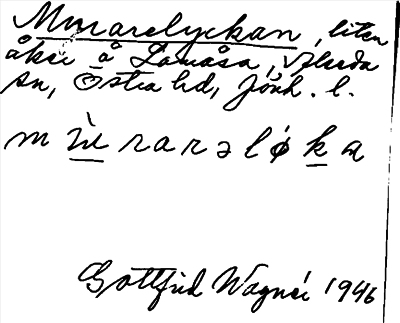 Murarelyckan, liten
åker å Lamåsa, Alseda
sn, Östra hd, Jönk. l.
m ù̱ rarəlǿḵa
Gottfrid Wagnér 1946